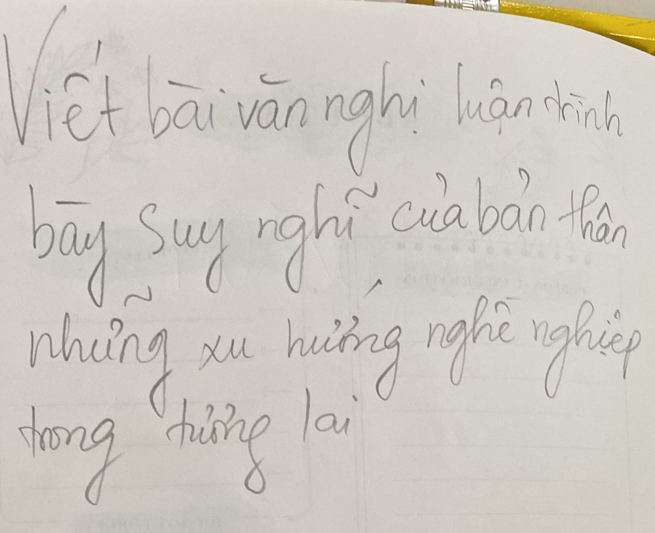 Viết bài văn nghị luận trình
bày suy nghĩ của bản thân
những xu hướng nghề nghiệp
trong tương lai